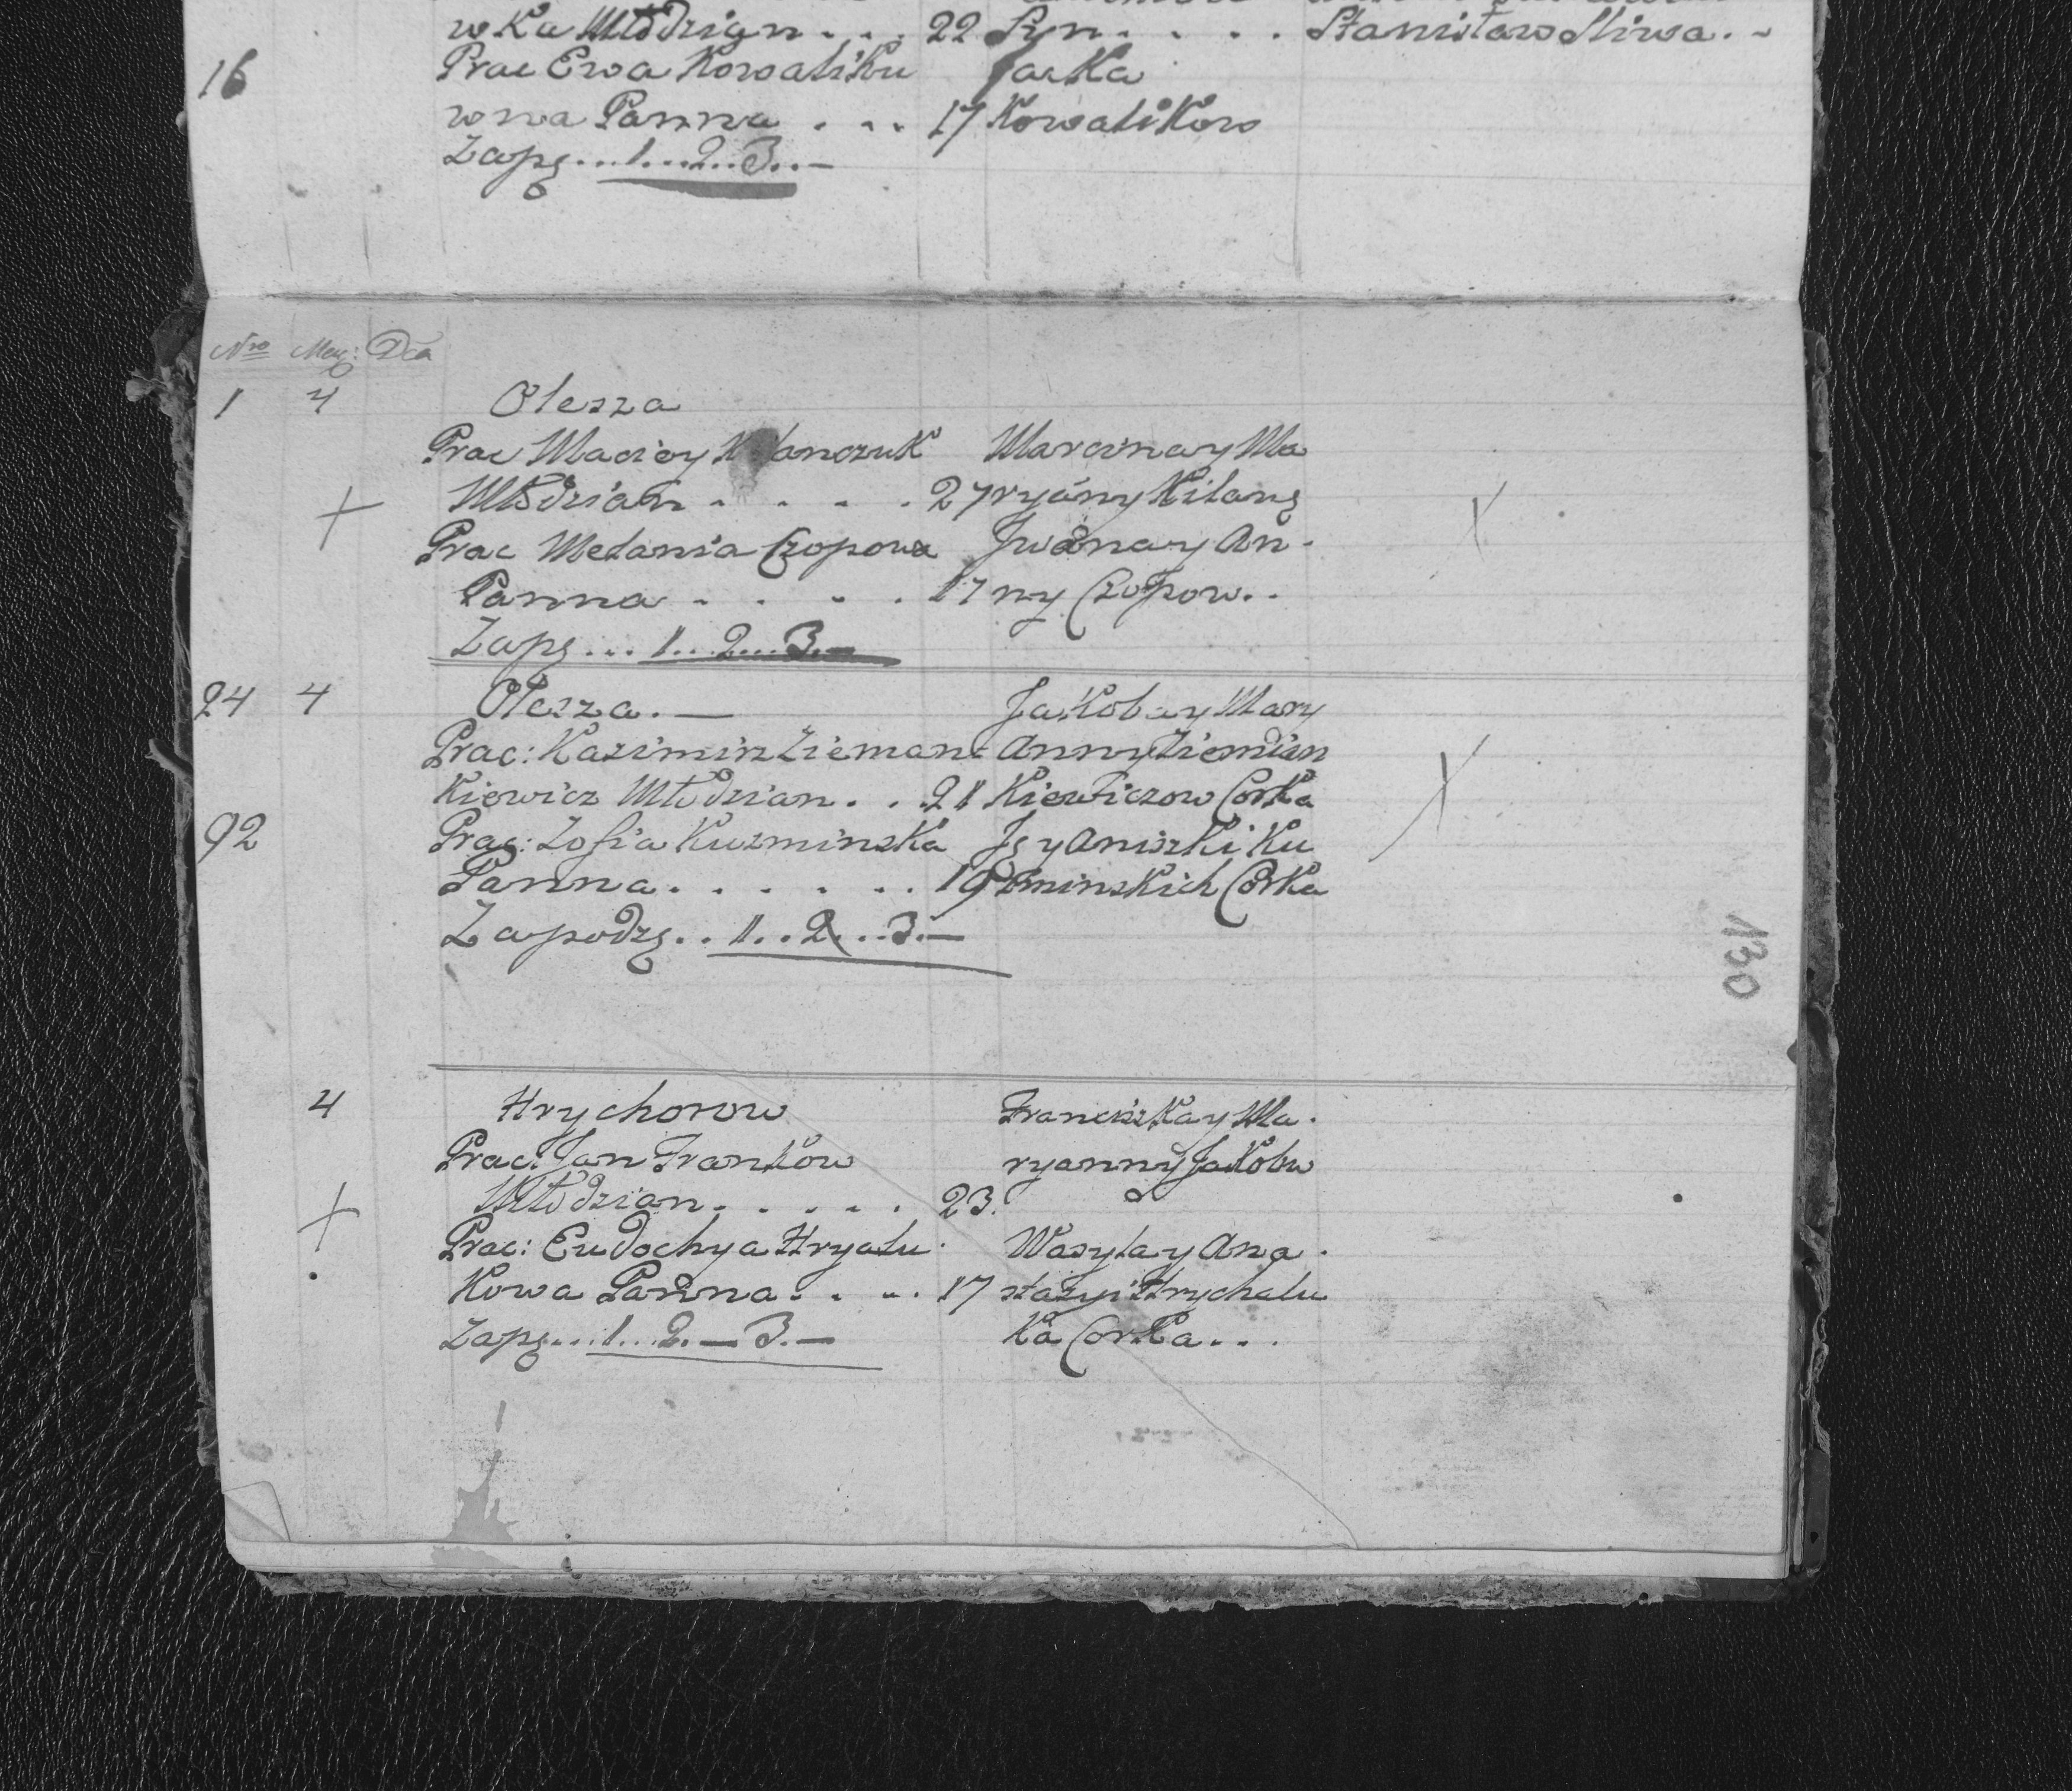 wKa Młodzian . . . 22 Syn . . . . Stanisław Sliwa . .
16 Prac Ewa Kowaliku JacKa
wna Panna . . . 17 KowaliKow
Zapę...1...2...3..—
Nro Mc: Dća
1 4 Olesza
Prac Maciey Marcina y Ma
Młodzian . . . . . 27 ryany Kilanę
Prac Melania Czopowa Jwana y An-
Panna . . . . 17 ny Czopow..
Zapę...1...2...3.—
24 4 Olesza.— JaKoba y Mary
Prac: Kazimirz Zieman= Anny Ziemian
Kiewicz Młodzian . . 21 Kiewiczow CorKa
92 Prac: Zofia KuzminsKa Jęy AniszKi Ku
Panna . . . . . . 19 zminsKich CorKa
Zapodzę..1..2...3.—
130
4 Hrychorow FranciszKa y Ma.
Prac: Jan FranKow ryanny JaKobu
Młodzian . . . . . 23.
Prac: Eudochya Hryalu. Wasyla y Ana.
Kowa Panna . . . . 17 stazyi Hrychalu
Zapę...1..2.—3.— Ka CorKa...